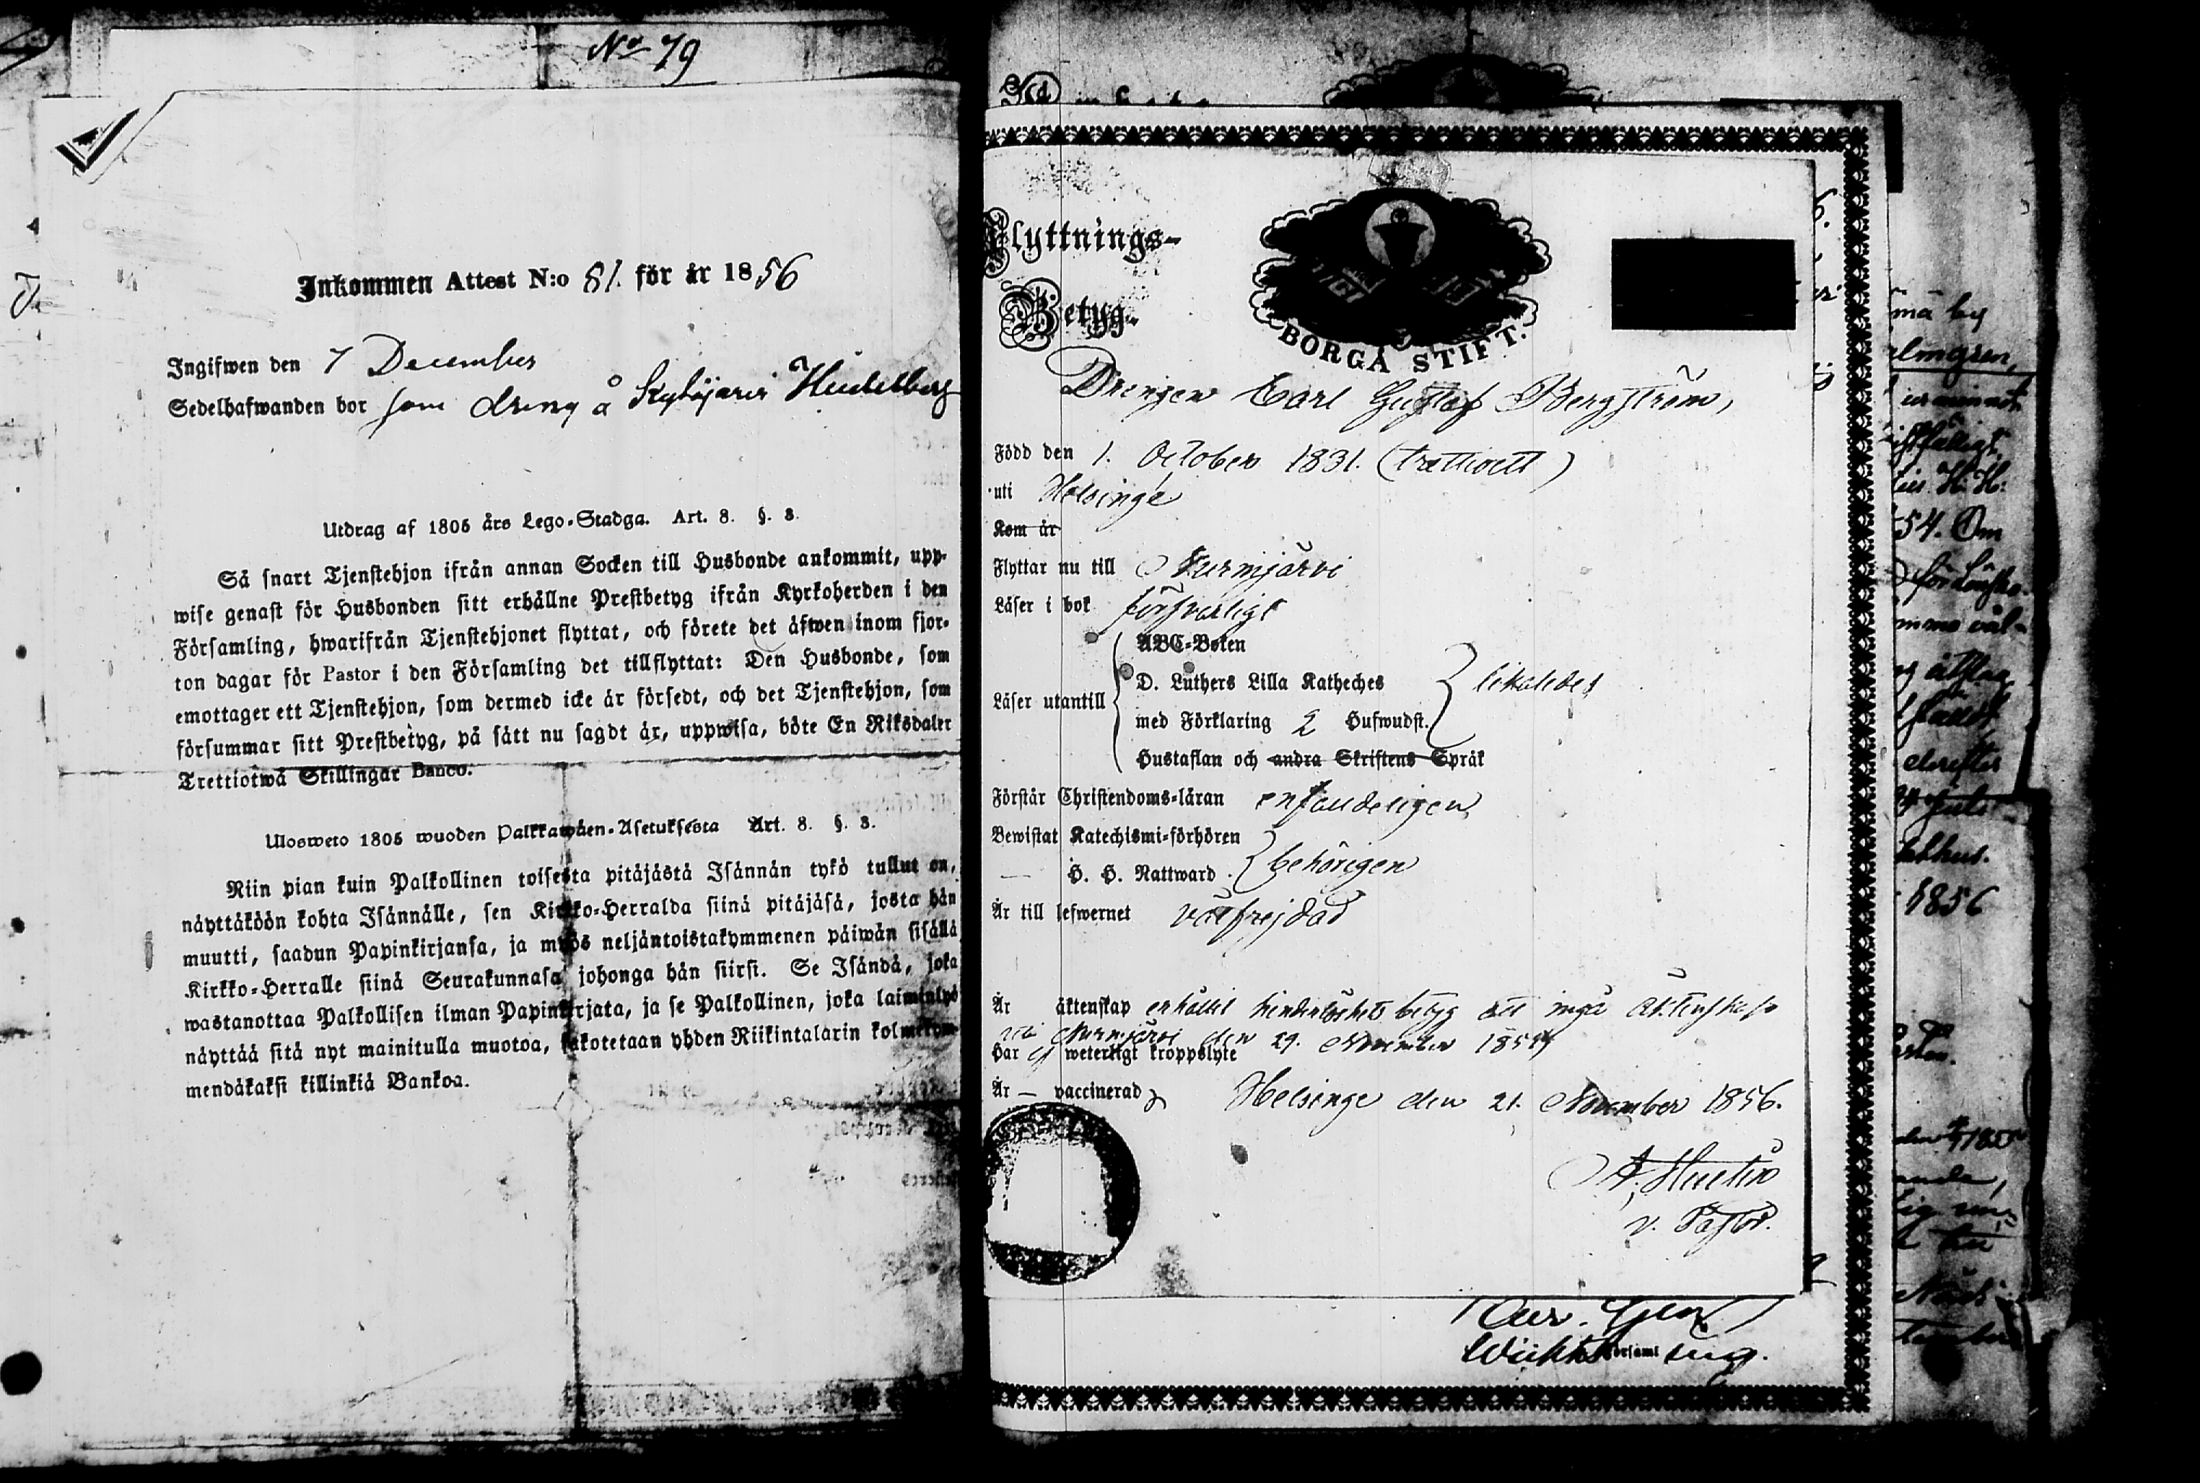 No 79
Inkommen Attest N:o 81. för år 1856
Ingifwen den 7 December
Sedelhafwanden bor som dräng å
Utdrag af 1805 års Lego-Stadga. Art. 8. §. 8.
Så snart Tjenstehjon ifrån annan Socken till Husbonde ankommit, upp-
wise genast för Husbonden sitt erhållne Prestbetyg ifrån Kyrkoherden i den
Församling, hwarifrån Tjenstehjonet flyttat, och förete det äfwen inom fjor-
ton dagar för Pastor i den Församling det tillflyttat: Den Husbonde, som
emottager ett Tjenstehjon, som dermed icke är försedt, och det Tjenstehjon, som
försummar sitt Prestbetyg, på sätt nu sagdt är, uppwisa, böte En Riksdaler
Trettiotwå Skillingar Banco.
Ulosweto 1805 wuoden Palkkawäen-Asetuksesta Art. 8. §. 8.
Niin pian kuin Palkollinen toisesta pitäjästä Isännän tykö tullut on,
näyttäköön kohta Isännälle, sen Kirkko-Herralda siinä pitäjäsä, josta hän
muutti, saadun Papinkirjansa, ja myös neljäntoistakymmenen päiwän sisällä
Kirkko-Herralle siinä Seurakunnasa johonga hän siirsi. Se Isändä, joka
wastanottaa Palkollisen ilman Papinkirjata, ja se Palkollinen, joka laiminlyö
näyttää sitä nyt mainitulla muotoa, sakotetaan yhden Riikintalarin kolmekym-
mendäkaksi killinkiä Bankoa.
Flyttnings-
Betyg.
BORGÅ STIFT.
Drengen Carl Gustaf Bergström,
Född den 1. October 1831. (trettioett)
uti Helsinge
Kom år
Flyttar nu till Nurmjärvi
Läser i bok försvarligt
ABC-Boken
D. Luthers Lilla Katheches
Läser utantill likaledes
med Förklaring 2 Hufwudst.
Hustaflan och andra Skriftens Språk
Förstår Christendoms-läran enfaldeligen
Bewistat Katechismi-förhören
H. H. Nattward behörigen
Är till lefwernet välfrejdad
Är äktenskap erhållit hinderlöshets betyg att ingå äktenskap
uti Nurmjärvi den 29. November
Har ej weterligt kroppslyte
Är — vaccinerad
Helsinge den 21. November 1856.
v. Pastor.
1856
54. Om